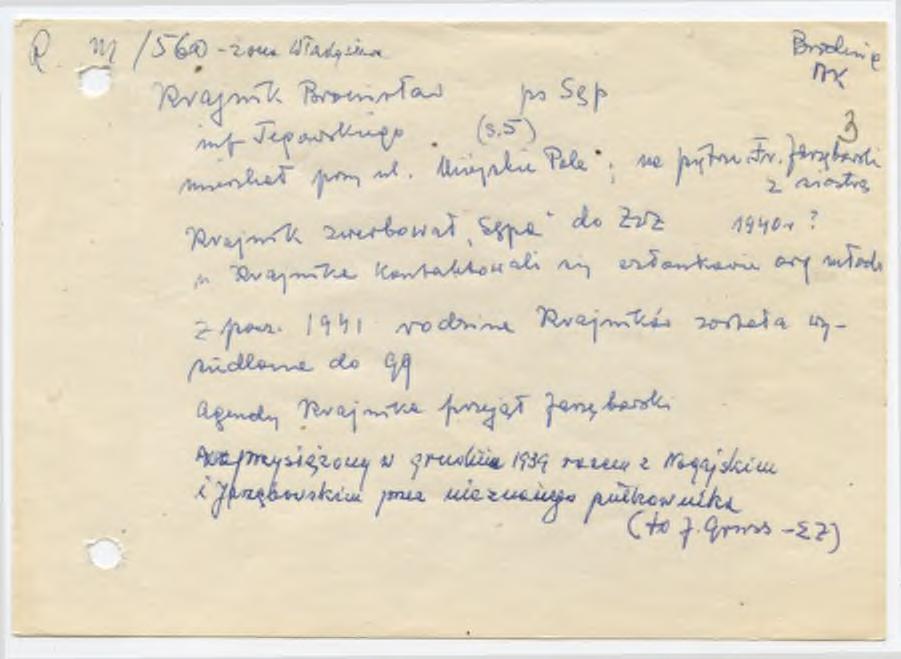 R. M/560 - żona Władysława
Brodnica
AK
3
Krajnik Bronisław ps Sęp
inf Tegowskiego (s.5)
mieszkał przy ul. Miejskie Pole"; na piętrze Fr. Jarzębowski
z siostrą
Krajnik zwerbował „Sępa" do ZWZ 1940 r ?
u Krajnika kontaktowali się członkowie org młodz
Z pocz. 1941 rodzina Krajników została wy-
siedlona do GG
Agendy Krajnika przejął Jarzębowski
zaprzysiężony w grudniu 1939 razem z Nogajskim
i Jarzębowskim przez nieznanego pułkownika
(to J. Gruss - EZ)